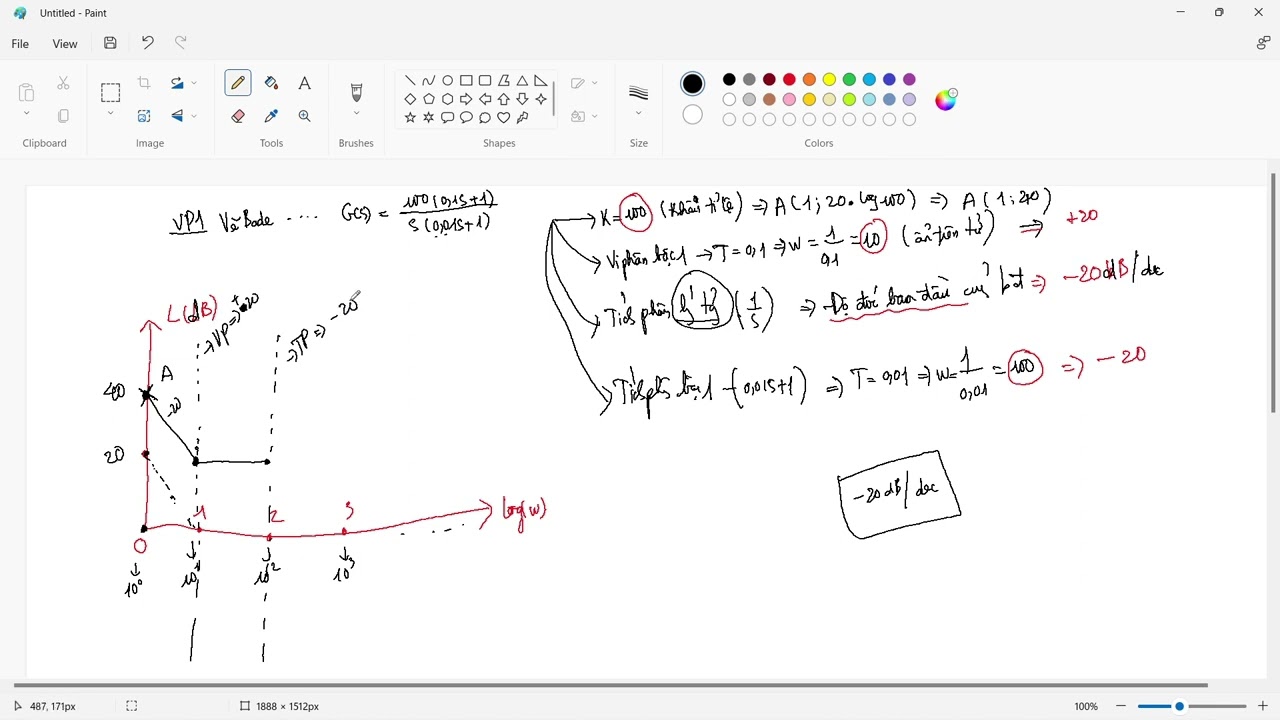 Untitled - Paint
File View
Clipboard Image Tools Brushes Shapes Size Colors
VP1 Vẽ Bode .... G(s) = 100(0,1s+1) / s(0,01s+1)
K = 100 (Khâu tỉ lệ) => A(1; 20.log100) => A(1; 40)
Vi phân bậc 1 -> T = 0,1 => w = 1/0,1 = 10 (ở trên tử) => +20
Tích phân lý tưởng (1/s) => Độ dốc ban đầu của => -20dB/dec
Tích phân bậc 1 - (0,01s+1) => T = 0,01 => w = 1/0,01 = 100 => -20
L(dB)
=> VP => +20
=> TP => -20
A
40
-20
20
1 2 3 log(w)
0
10⁰ 10¹ 10² 10³
-20 dB/dec
487, 171px
1888 × 1512px
100%